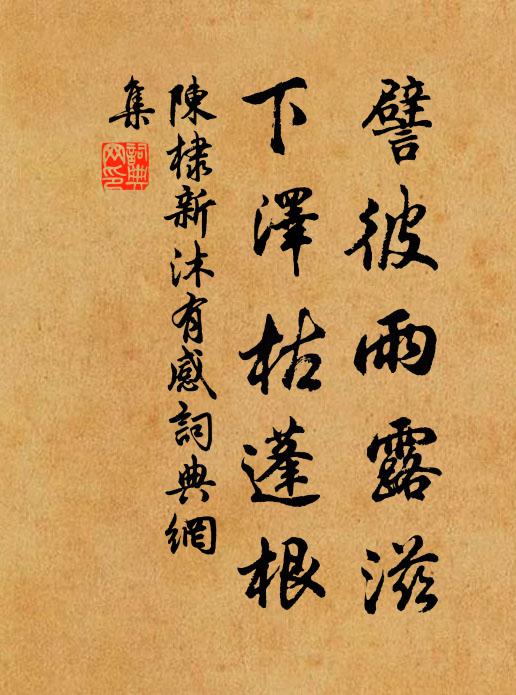 譬彼雨露滋
下澤枯蓬根
陳棣新沐有感詞典網
集
詞典網印